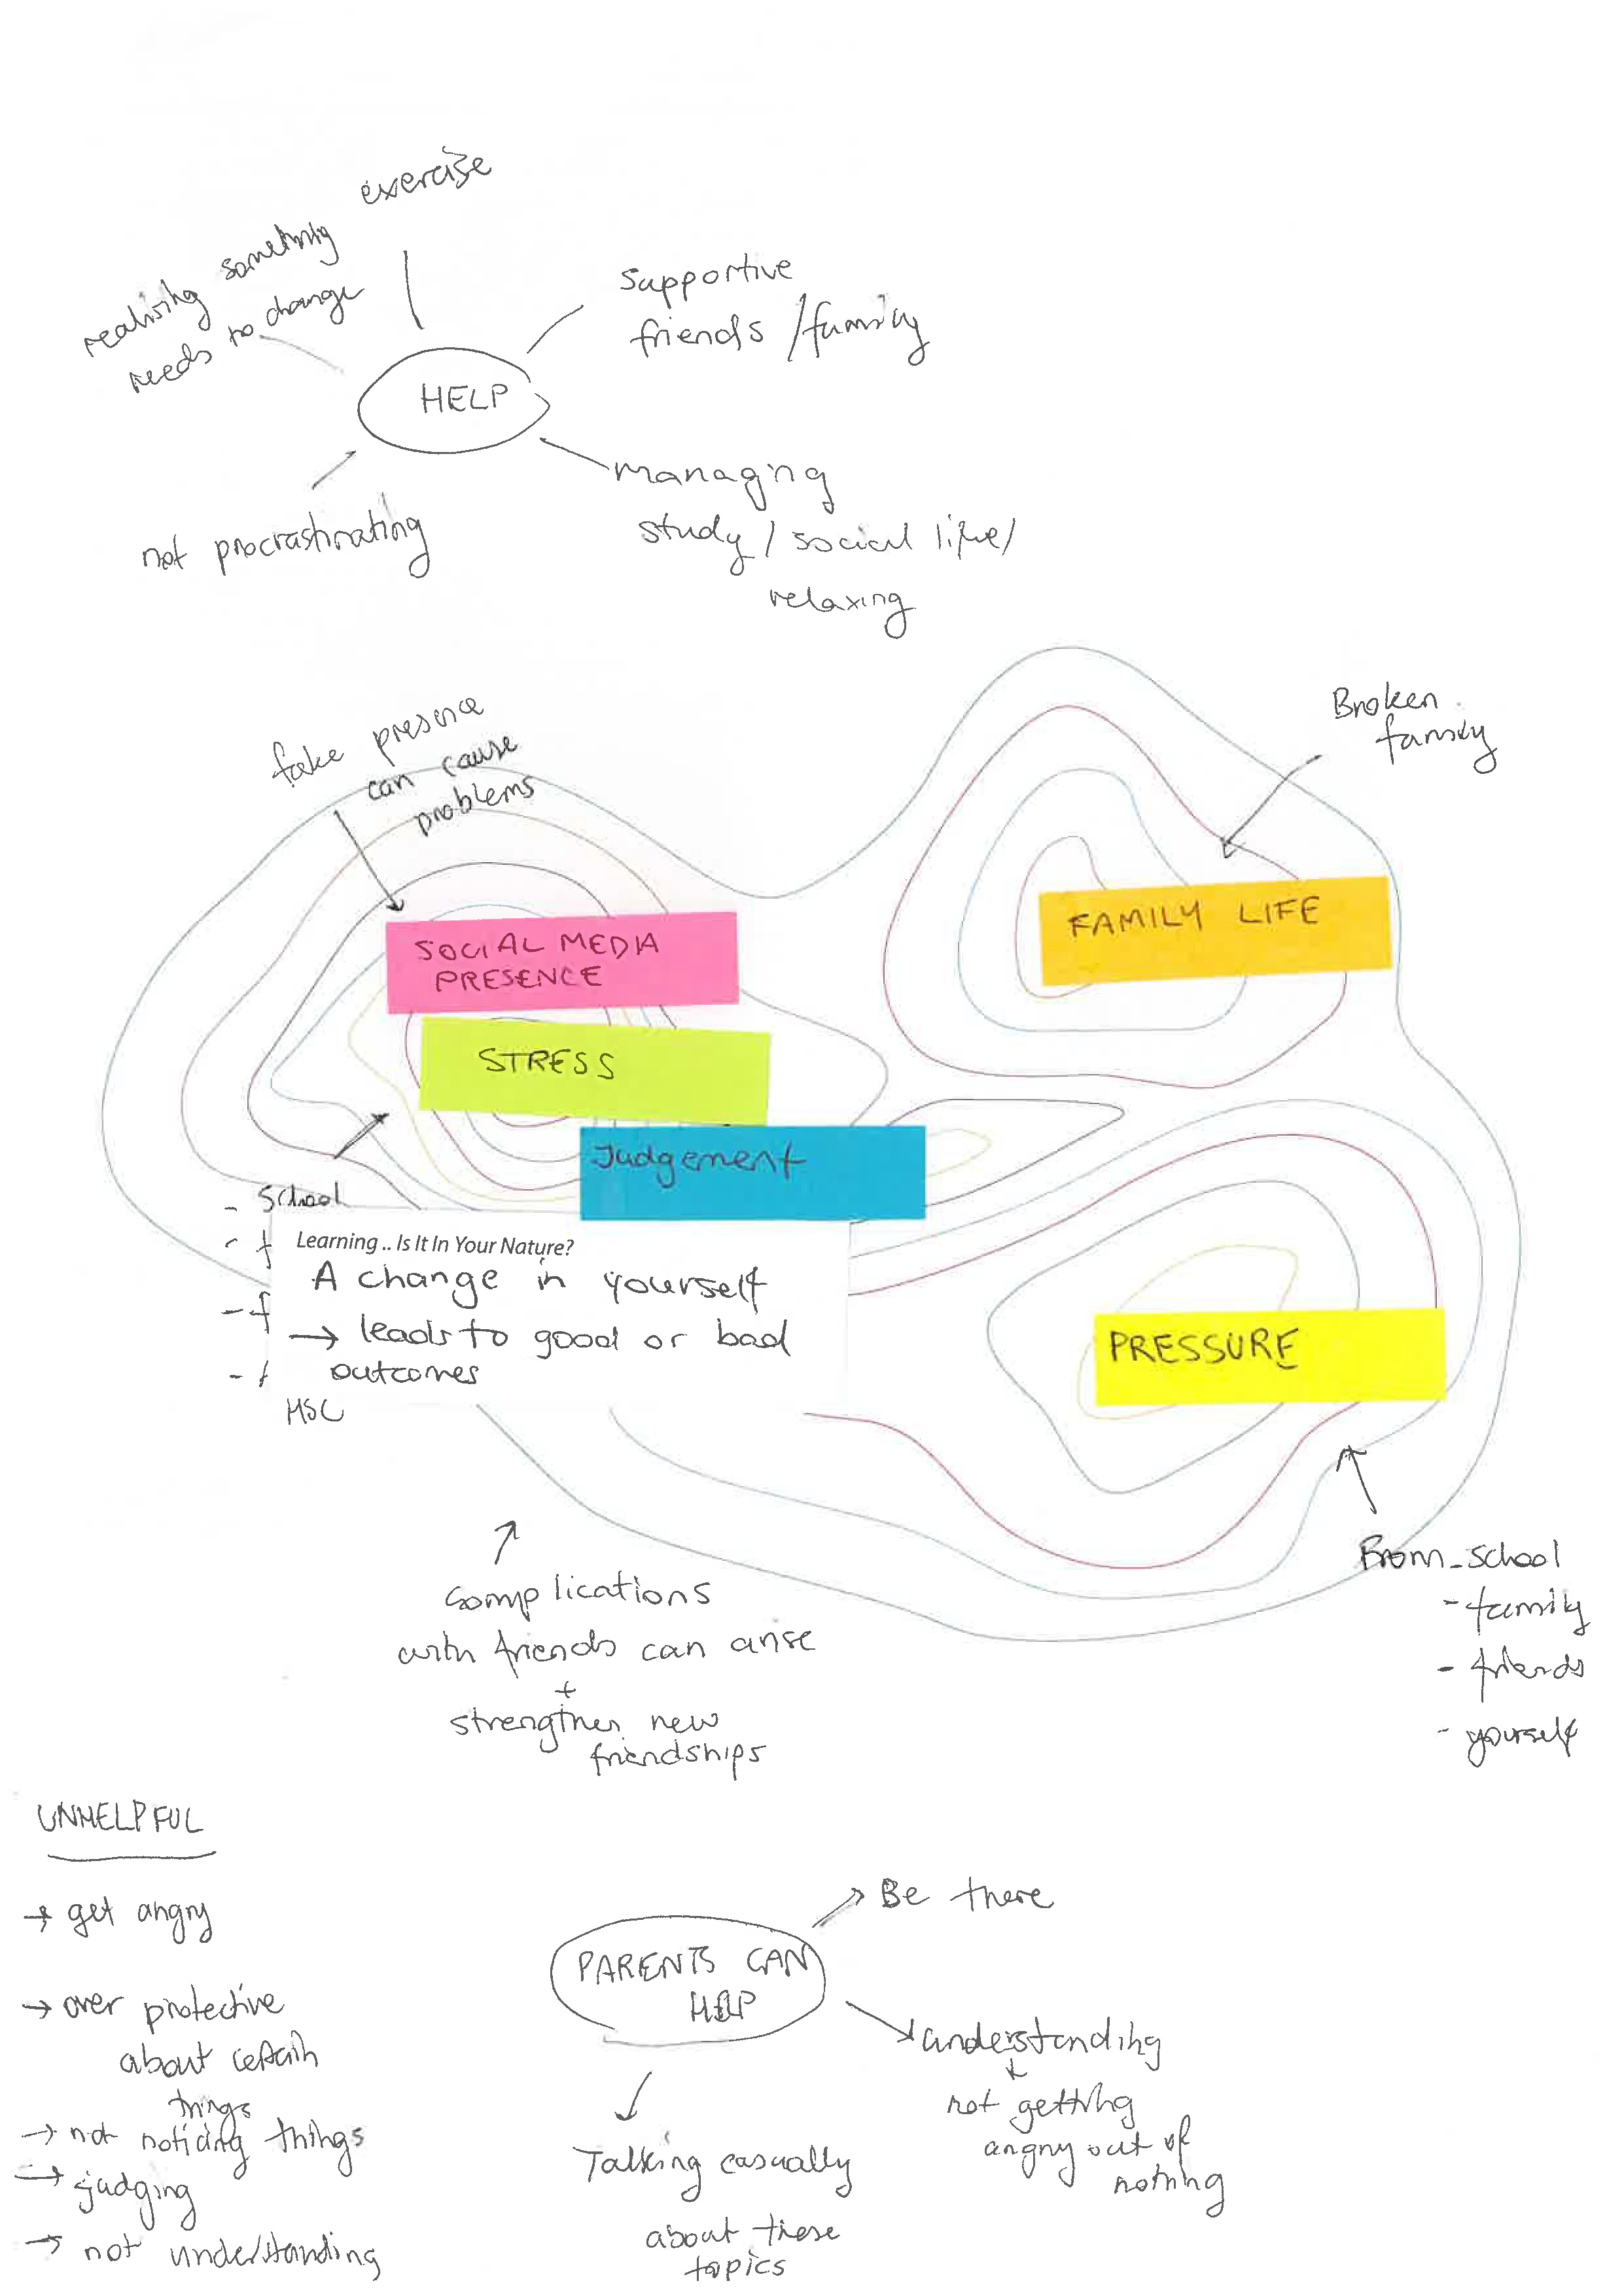 exercise
realising something
needs to change
supportive
friends / family
HELP
managing
study / social life /
relaxing
not procrastinating
fake presence
can cause
problems
Broken
family
SOCIAL MEDIA
PRESENCE
FAMILY LIFE
STRESS
Judgement
- School
- f
- f
-
HSC
Learning .. Is It In Your Nature?
A change in yourself
→ leads to good or bad
outcomes
PRESSURE
complications
with friends can arise
+
strengthen new
friendships
From - school
- family
- friends
- yourself
UNHELPFUL
→ get angry
→ over protective
about certain
things
→ not noticing things
→ judging
→ not understanding
PARENTS CAN
HELP
Be there
understanding
not getting
angry out of
nothing
Talking casually
about these
topics